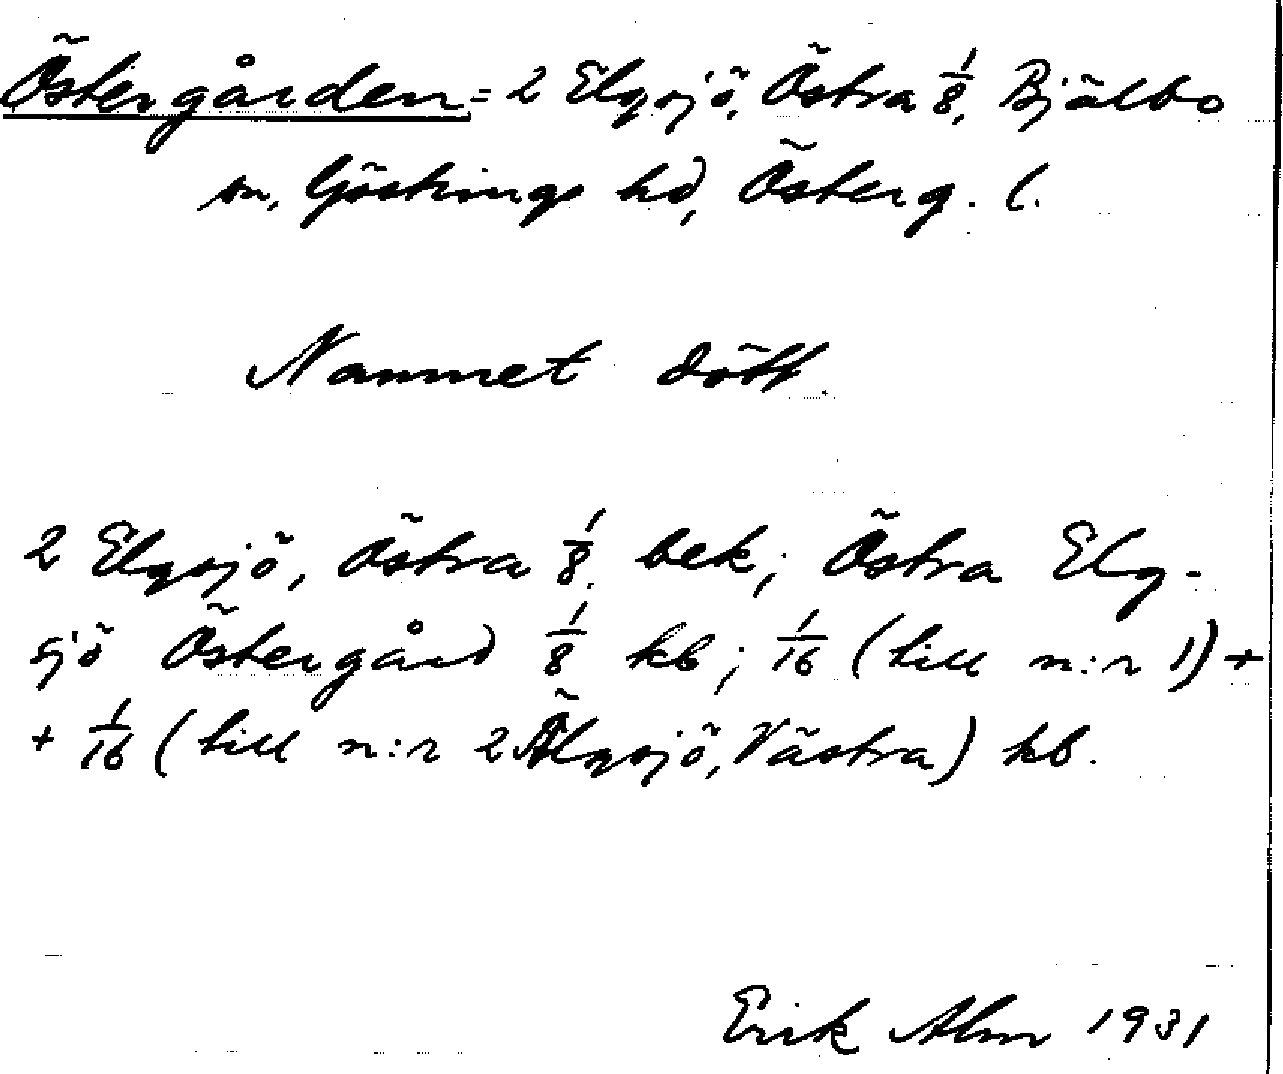 Östergården = 2 Elgsjö, Östra 1/8, Bjälbo
sn, Göstrings hd, Österg. l.
Namnet dött.
2 Elgsjö, Östra 1/8. bek; Östra Elg-
sjö Östergård 1/8 kb; 1/16 (till n:r 1) +
+ 1/16 (till n:r 2 Älgsjö, Västra) kb.
Erik Alm 1931